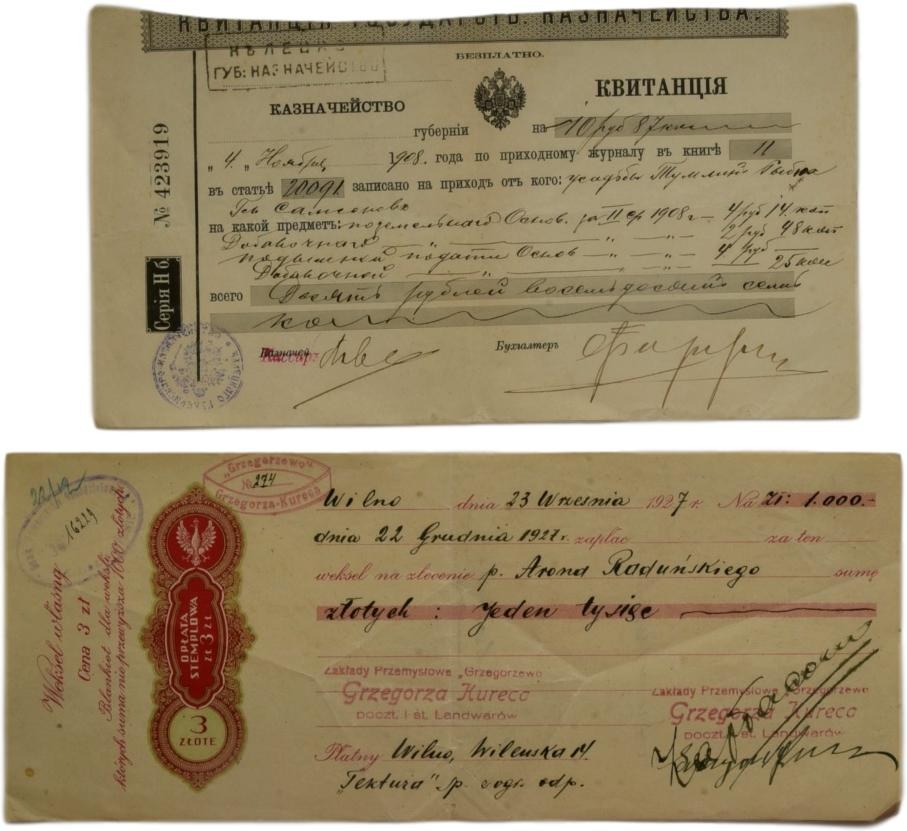 КВИТАНЦІЯ ГОСУДАРСТВ. КАЗНАЧЕЙСТВА.
КѢЛЕЦКО
ГУБ: НАЗНАЧЕЙСТВО
БЕЗПЛАТНО.
КАЗНАЧЕЙСТВО
КВИТАНЦІЯ
губерніи на 10 руб 87 коп
„ 4 „ Ноября 1908. года по приходному журналу въ книгѣ 11
въ статьѣ 20091 записано на приходъ отъ кого: усадьбы
на какой предметъ: поземельнаго Основ. за II ср 1908 г — 4 руб 14 коп
Добавочнаго „ — „ — 2 руб 48 коп
подымный подати Основ — „ — 4 руб
Добавочной — „ — 25 коп
всего Десять рублей восемьдесятъ семь
коп
№ 423919
Серія Н б.
Кассиръ
Бухгалтеръ
„Grzegorzewo"
№ 274
Grzegorza-Kureca
16229
Weksel własny
Cena 3 zł
Blankiet dla weksli,
których suma nie przewyższa 1000 złotych
OPŁATA
STEMPLOWA
ZŁ 3 ZŁ
3
ZŁOTE
Wilno dnia 23 Września 1927 r. Na Zł: 1.000.-
dnia 22 Grudnia 1927 r. zapłac za ten
weksel na zlecenie p. Arona Raduńskiego sumę
złotych: Jeden tysiąc
Zakłady Przemysłowe „Grzegorzewo
Grzegorza Kureca
poczt. i st. Landwarów
Zakłady Przemysłowe „Grzegorzewo
Grzegorza Kureca
poczt. i st. Landwarów
Płatny Wilno, Wileńska 14
„Tektura" sp. z ogr. odp.